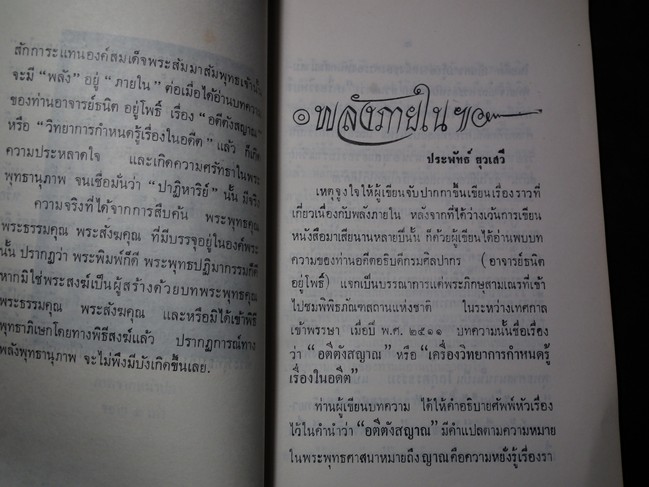 สักการะแทนองค์สมเด็จพระสัมมาสัมพุทธเจ้านั้น
จะมี “พลัง” อยู่ “ภายใน” ต่อเมื่อได้อ่านบทความ
ของท่านอาจารย์ธนิต อยู่โพธิ์ เรื่อง “อตีตังสญาณ”
หรือ “วิทยาการกำหนดรู้เรื่องในอดีต” แล้ว ก็เกิด
ความประหลาดใจ และเกิดความศรัทธาในพระ
พุทธานุภาพ จนเชื่อมั่นว่า “ปาฏิหาริย์” นั้น มีจริง
ความจริงที่ได้จากการสืบค้น พระพุทธคุณ
พระธรรมคุณ พระสังฆคุณ ที่มีบรรจุอยู่ในองค์พระ
นั้น ปรากฏว่า พระพิมพ์ก็ดี พระพุทธปฏิมากรรมก็ดี
หากมิใช่พระสงฆ์เป็นผู้สร้างด้วยบทพระพุทธคุณ
พระธรรมคุณ พระสังฆคุณ และหรือมิได้เข้าพิธี
พุทธาภิเษกโดยทางพิธีสงฆ์แล้ว ปรากฏการณ์ทาง
พลังพุทธานุภาพ จะไม่พึงมีบังเกิดขึ้นเลย.
๏พลังภายในฯ
ประพัทธ์ ยุวเสวี
เหตุจูงใจให้ผู้เขียนจับปากกาขึ้นเขียนเรื่องราวที่
เกี่ยวเนื่องกับพลังภายใน หลังจากที่ได้ว่างเว้นการเขียน
หนังสือมาเสียนานหลายปีนั้น ก็ด้วยผู้เขียนได้อ่านพบบท
ความของท่านอดีตอธิบดีกรมศิลปากร (อาจารย์ธนิต
อยู่โพธิ์) แจกเป็นบรรณาการแด่พระภิกษุสามเณรที่เข้า
ไปชมพิพิธภัณฑสถานแห่งชาติ ในระหว่างเทศกาล
เข้าพรรษา เมื่อปี พ.ศ. ๒๕๑๑ บทความนั้นชื่อเรื่อง
ว่า “อตีตังสญาณ” หรือ “เครื่องวิทยาการกำหนดรู้
เรื่องในอดีต”
ท่านผู้เขียนบทความ ได้ให้คำอธิบายศัพท์หัวเรื่อง
ไว้ในคำนำว่า “อตีตังสญาณ” มีคำแปลตามความหมาย
ในพระพุทธศาสนาหมายถึง ญาณคือความหยั่งรู้เรื่องรา